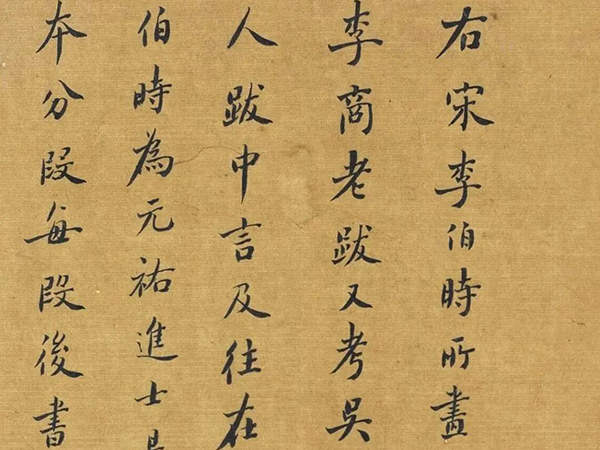 右宋李伯時所畫
李商老跋又考吳
人跋中言及往在
伯時為元祐進士
本分段每段後書